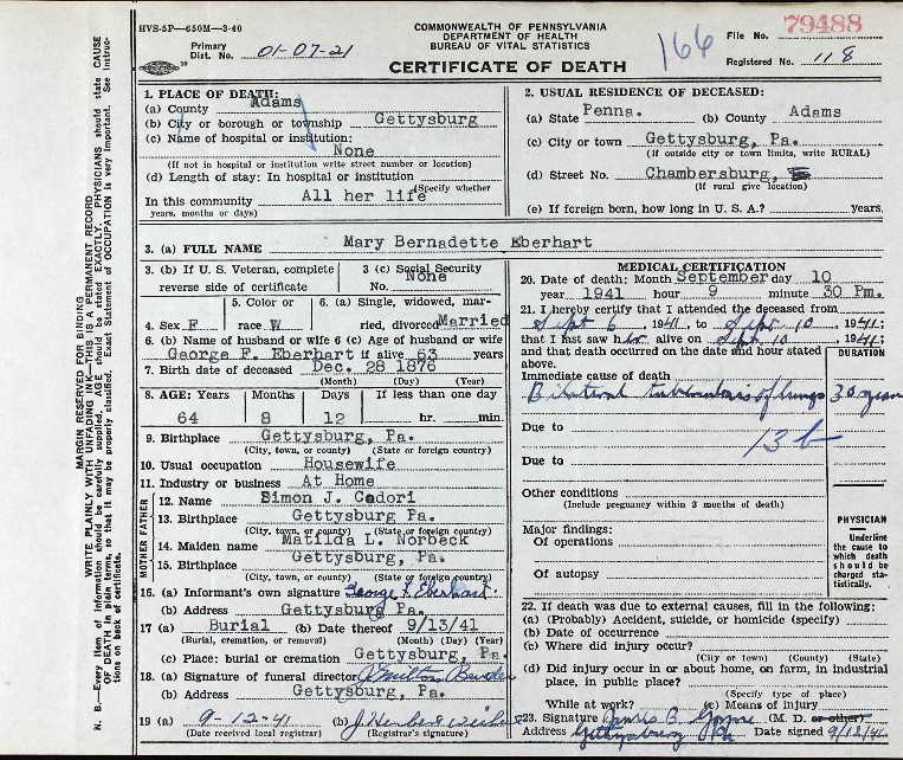 HVS-5P—650M—3-40
COMMONWEALTH OF PENNSYLVANIA
DEPARTMENT OF HEALTH
BUREAU OF VITAL STATISTICS
CERTIFICATE OF DEATH
Primary Dist. No. 01-07-21
166
File No. 79488
Registered No. 118
1. PLACE OF DEATH:
(a) County Adams
(b) City or borough or township Gettysburg
(c) Name of hospital or institution:
None
(If not in hospital or institution write street number or location)
(d) Length of stay: In hospital or institution
(Specify whether
In this community All her life
years, months or days)
2. USUAL RESIDENCE OF DECEASED:
(a) State Penna. (b) County Adams
(c) City or town Gettysburg, Pa.
(If outside city or town limits, write RURAL)
(d) Street No. Chambersburg,
(If rural give location)
(e) If foreign born, how long in U. S. A.? years.
3. (a) FULL NAME Mary Bernadette Eberhart
3. (b) If U. S. Veteran, complete reverse side of certificate
3 (c) Social Security No. None
4. Sex F
5. Color or race W
6. (a) Single, widowed, married, divorced Married
6. (b) Name of husband or wife 6 (c) Age of husband or wife
George F. Eberhart if alive 63 years
7. Birth date of deceased Dec. 28 1876
(Month) (Day) (Year)
8. AGE: Years Months Days If less than one day
64 8 12 hr. min.
9. Birthplace Gettysburg, Pa.
(City, town, or county) (State or foreign country)
10. Usual occupation Housewife
11. Industry or business At Home
MOTHER FATHER
12. Name Simon J. Codori
13. Birthplace Gettysburg Pa.
(City, town, or county) (State or foreign country)
14. Maiden name Matilda L. Norbeck
15. Birthplace Gettysburg, Pa.
(City, town, or county) (State or foreign country)
16. (a) Informant's own signature George F. Eberhart.
(b) Address Gettysburg Pa.
17 (a) Burial (b) Date thereof 9/13/41
(Burial, cremation, or removal) (Month) (Day) (Year)
(c) Place: burial or cremation Gettysburg, Pa.
18. (a) Signature of funeral director J. Milton Bender
(b) Address Gettysburg, Pa.
19 (a) 9-12-41 (b)
(Date received local registrar) (Registrar's signature)
MEDICAL CERTIFICATION
20. Date of death: Month September day 10
year 1941 hour 9 minute 30 Pm.
21. I hereby certify that I attended the deceased from
Sept 6, 1941, to Sept 10, 1941;
that I last saw her alive on Sept 10, 1941;
and that death occurred on the date and hour stated above.
DURATION
Immediate cause of death
Bilateral tuberculosis of lungs 30 years
Due to
13 b
Due to
Other conditions
(Include pregnancy within 3 months of death)
Major findings:
Of operations
Of autopsy
PHYSICIAN
Underline the cause to which death should be charged statistically.
22. If death was due to external causes, fill in the following:
(a) (Probably) Accident, suicide, or homicide (specify)
(b) Date of occurrence
(c) Where did injury occur?
(City or town) (County) (State)
(d) Did injury occur in or about home, on farm, in industrial place, in public place?
(Specify type of place)
While at work? (e) Means of injury
23. Signature (M. D. or other)
Address Gettysburg Pa Date signed 9/12/41
MARGIN RESERVED FOR BINDING
WRITE PLAINLY WITH UNFADING INK—THIS IS A PERMANENT RECORD
N. B.—Every item of information should be carefully supplied. AGE should be stated EXACTLY. PHYSICIANS should state CAUSE OF DEATH in plain terms, so that it may be properly classified. Exact Statement of OCCUPATION is very important. See instructions on back of certificate.